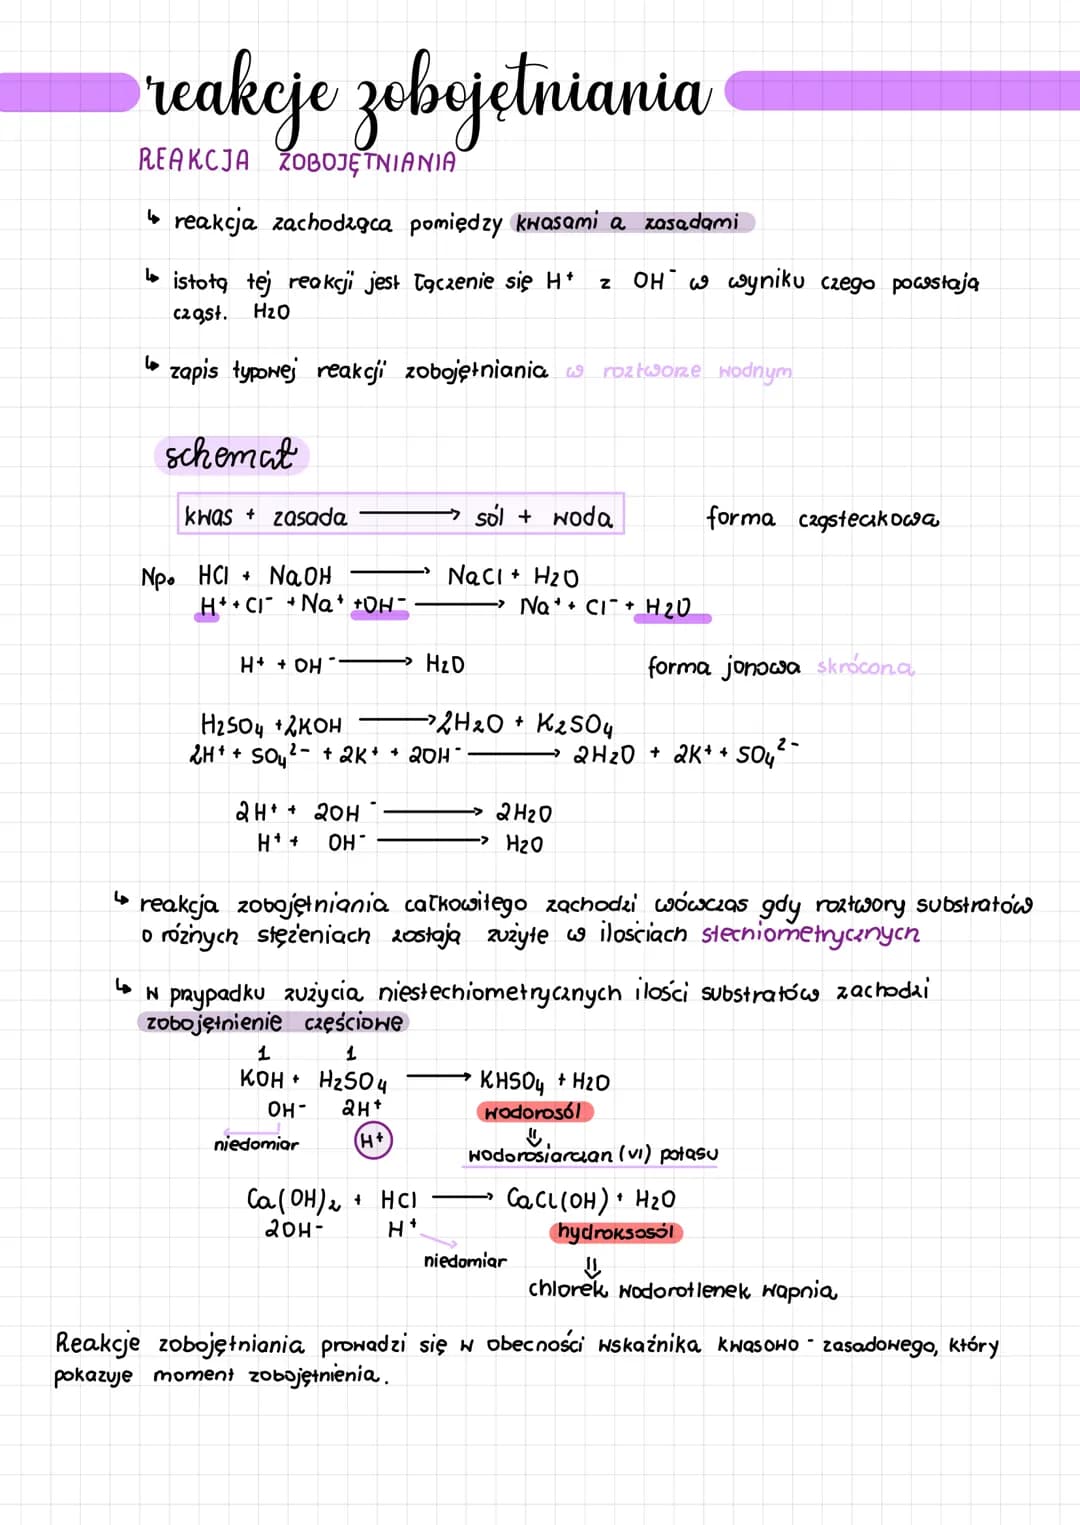 reakcje zobojętniania
REAKCJA ZOBOJĘTNIANIA
↳ reakcja zachodząca pomiędzy kwasami a zasadami
↳ istotą tej reakcji jest łączenie się H⁺ z OH⁻ w wyniku czego powstają
cząst. H₂O
↳ zapis typowej reakcji zobojętniania w roztworze wodnym
schemat
kwas + zasada → sól + woda forma cząsteczkowa
Np. HCl + NaOH → NaCl + H₂O
H⁺ + Cl⁻ + Na⁺ + OH⁻ → Na⁺ + Cl⁻ + H₂O
H⁺ + OH⁻ → H₂O forma jonowa skrócona
H₂SO₄ + 2KOH → 2H₂O + K₂SO₄
2H⁺ + SO₄²⁻ + 2K⁺ + 2OH⁻ → 2H₂O + 2K⁺ + SO₄²⁻
2H⁺ + 2OH⁻ → 2H₂O
H⁺ + OH⁻ → H₂O
↳ reakcja zobojętniania całkowitego zachodzi wówczas gdy roztwory substratów
o różnych stężeniach zostają zużyte w ilościach stechiometrycznych
↳ w przypadku zużycia niestechiometrycznych ilości substratów zachodzi
zobojętnienie częściowe
1 1
KOH + H₂SO₄ → KHSO₄ + H₂O
OH⁻ 2H⁺ wodorosól
niedomiar H⁺ ⇓
wodorosiarczan (VI) potasu
Ca(OH)₂ + HCl → CaCl(OH) + H₂O
2OH⁻ H⁺ hydroksosól
niedomiar ⇓
chlorek wodorotlenek wapnia
Reakcje zobojętniania prowadzi się w obecności wskaźnika kwasowo - zasadowego, który
pokazuje moment zobojętnienia.